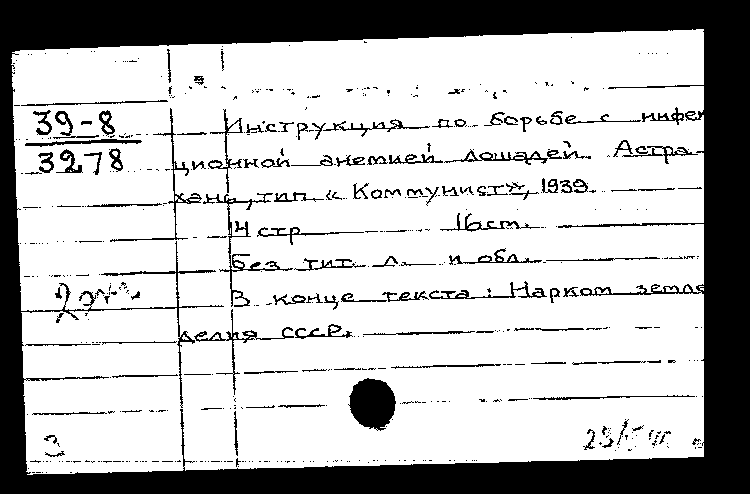 39-8
3278
Инструкция по борьбе с инфек
ционной анемией лошадей. Астра-
хань, тип. «Коммунист», 1939.
14 стр. 16 cm.
Без тит. л. и обл.
В конце текста: Нарком земле
делия СССР.
3